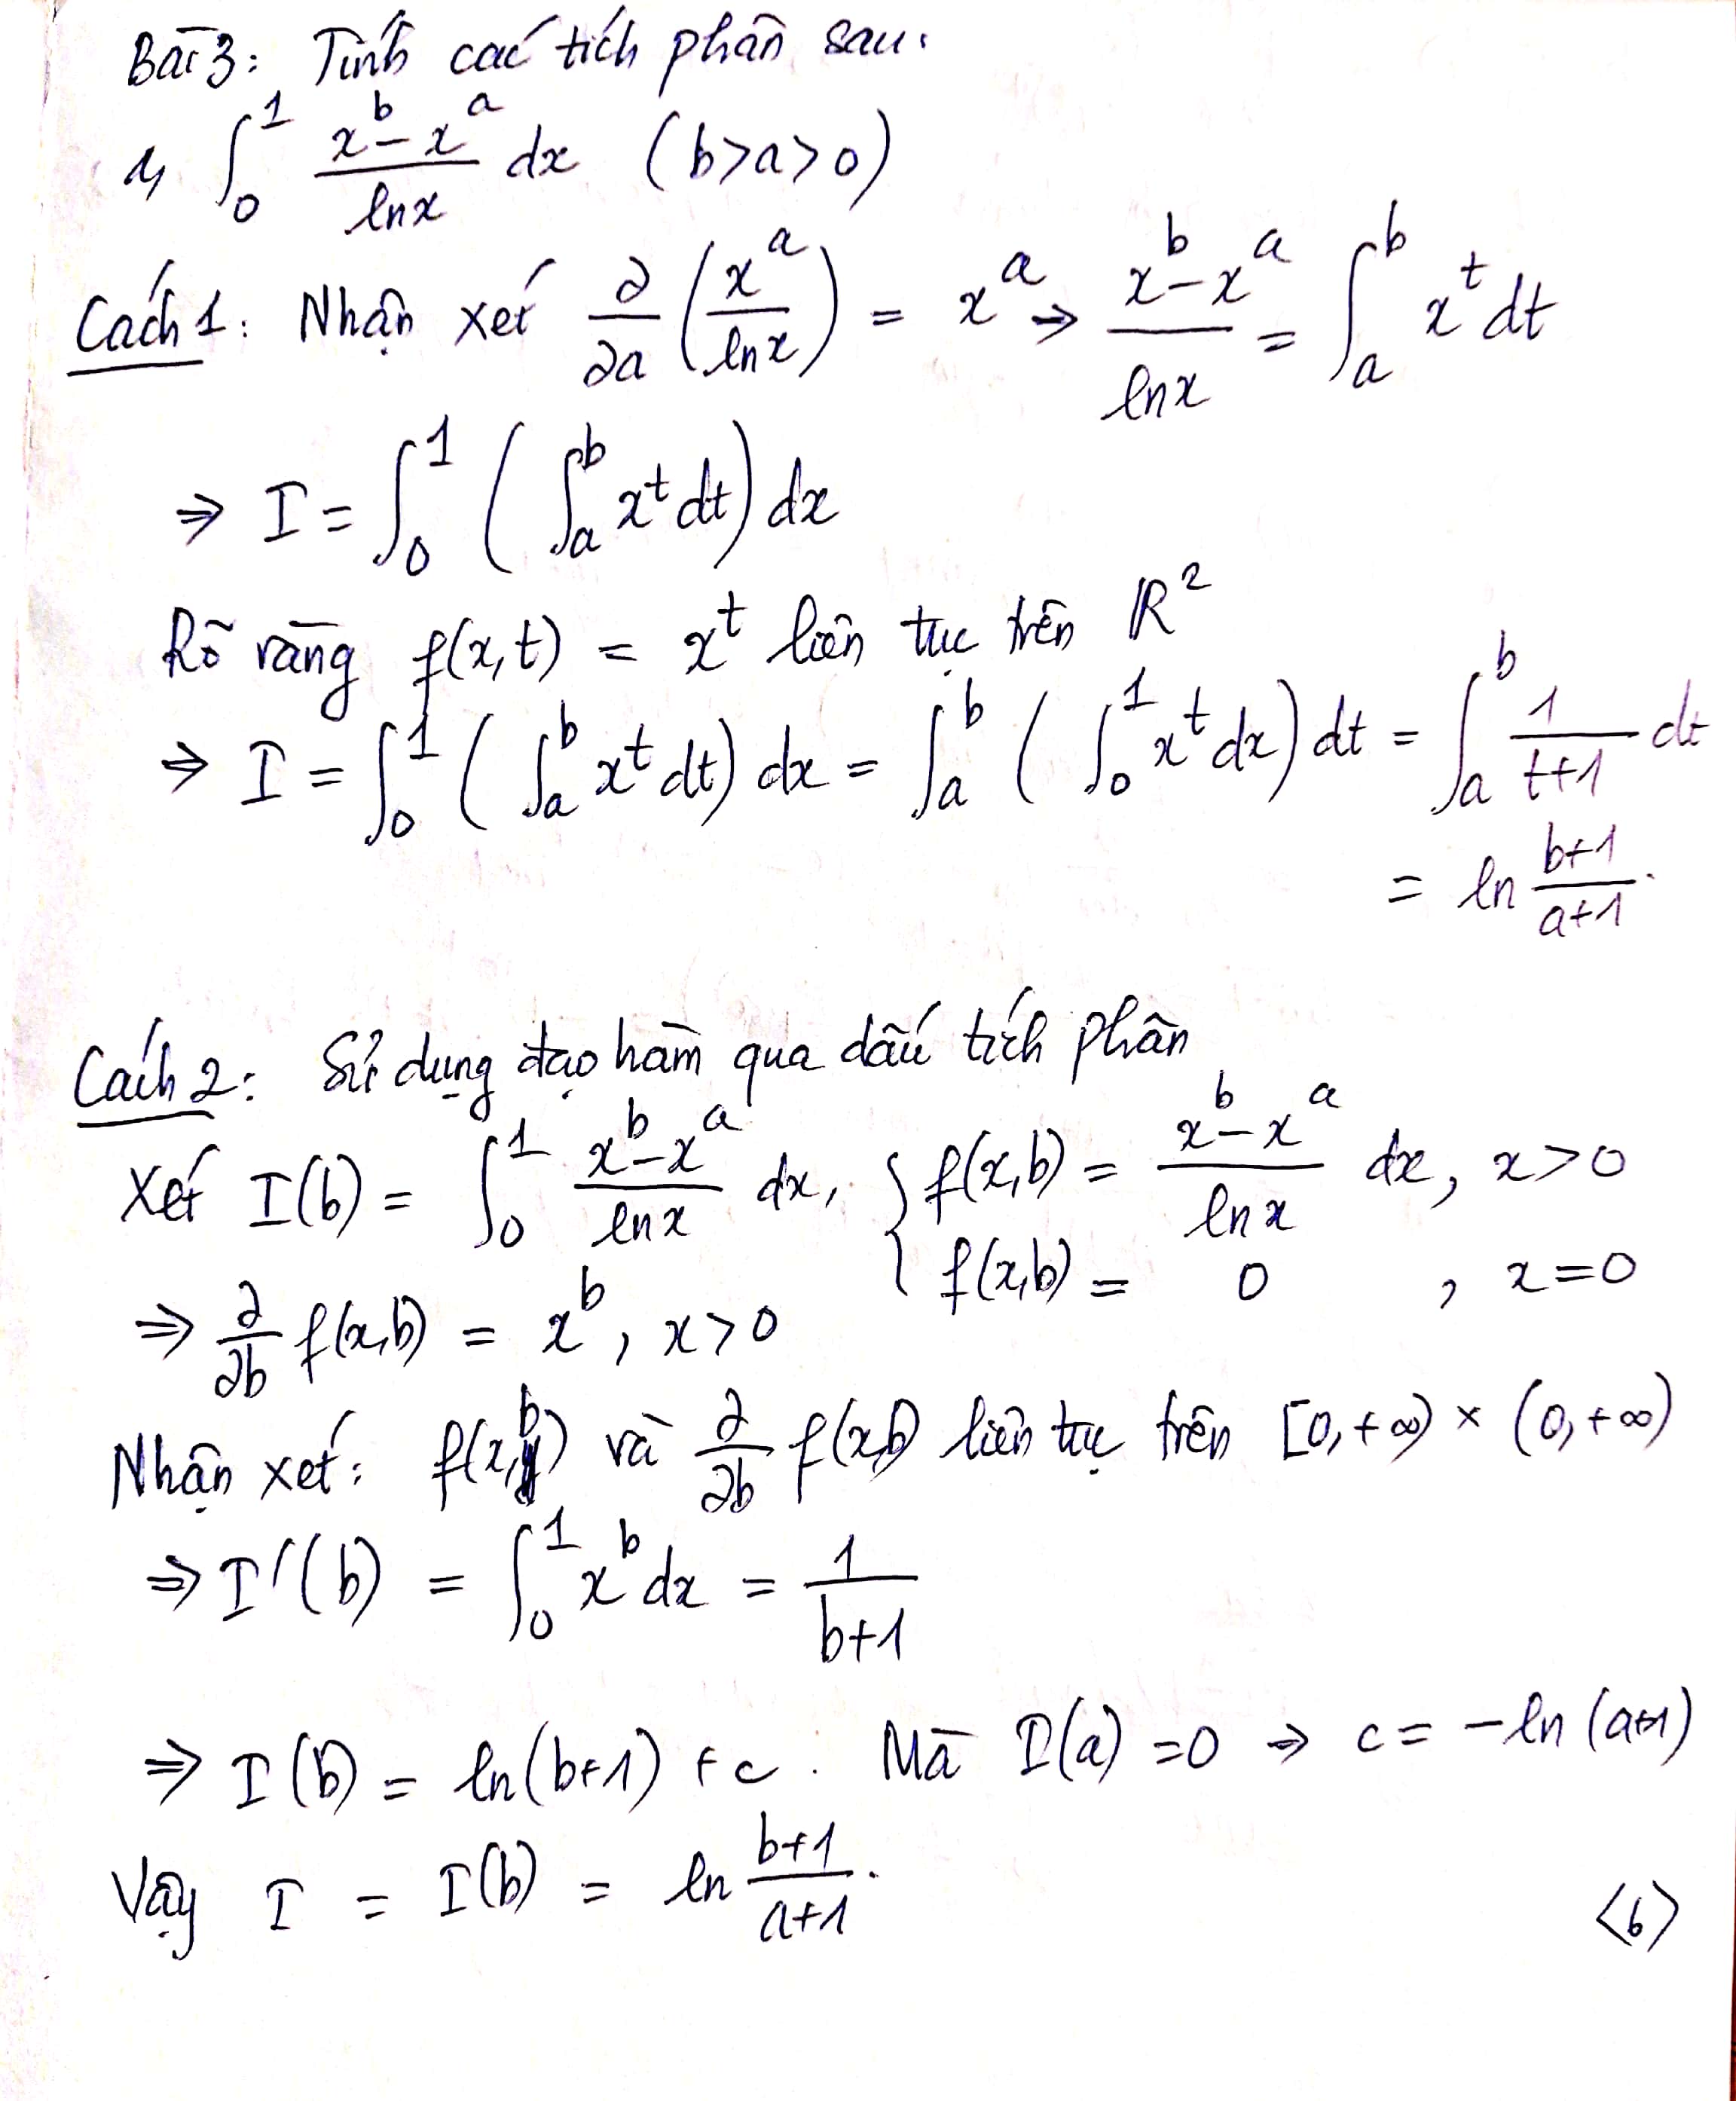 Bài 3: Tính các tích phân sau:
1, ∫₀¹ (x^b − x^a)/(ln x) dx (b>a>0)
Cách 1: Nhận xét ∂/∂a (x^a/ln x) = x^a ⇒ (x^b − x^a)/(ln x) = ∫_a^b x^t dt
⇒ I = ∫₀¹ ( ∫_a^b x^t dt) dx
Rõ ràng f(x,t) = x^t liên tục trên ℝ²
⇒ I = ∫₀¹ ( ∫_a^b x^t dt) dx = ∫_a^b ( ∫₀¹ x^t dx) dt = ∫_a^b 1/(t+1) dt
= ln (b+1)/(a+1).
Cách 2: Sử dụng đạo hàm qua dấu tích phân
Xét I(b) = ∫₀¹ (x^b − x^a)/(ln x) dx, { f(x,b) = (x^b − x^a)/(ln x) dx, x>0
f(x,b) = 0 , x=0
⇒ ∂/∂b f(x,b) = x^b, x>0
Nhận xét: f(x,b) và ∂/∂b f(x,b) liên tục trên [0,+∞) × (0,+∞)
⇒ I'(b) = ∫₀¹ x^b dx = 1/(b+1)
⇒ I(b) = ln(b+1) + c. Mà I(a) =0 ⇒ c = −ln(a+1)
Vậy I = I(b) = ln (b+1)/(a+1).
<6>